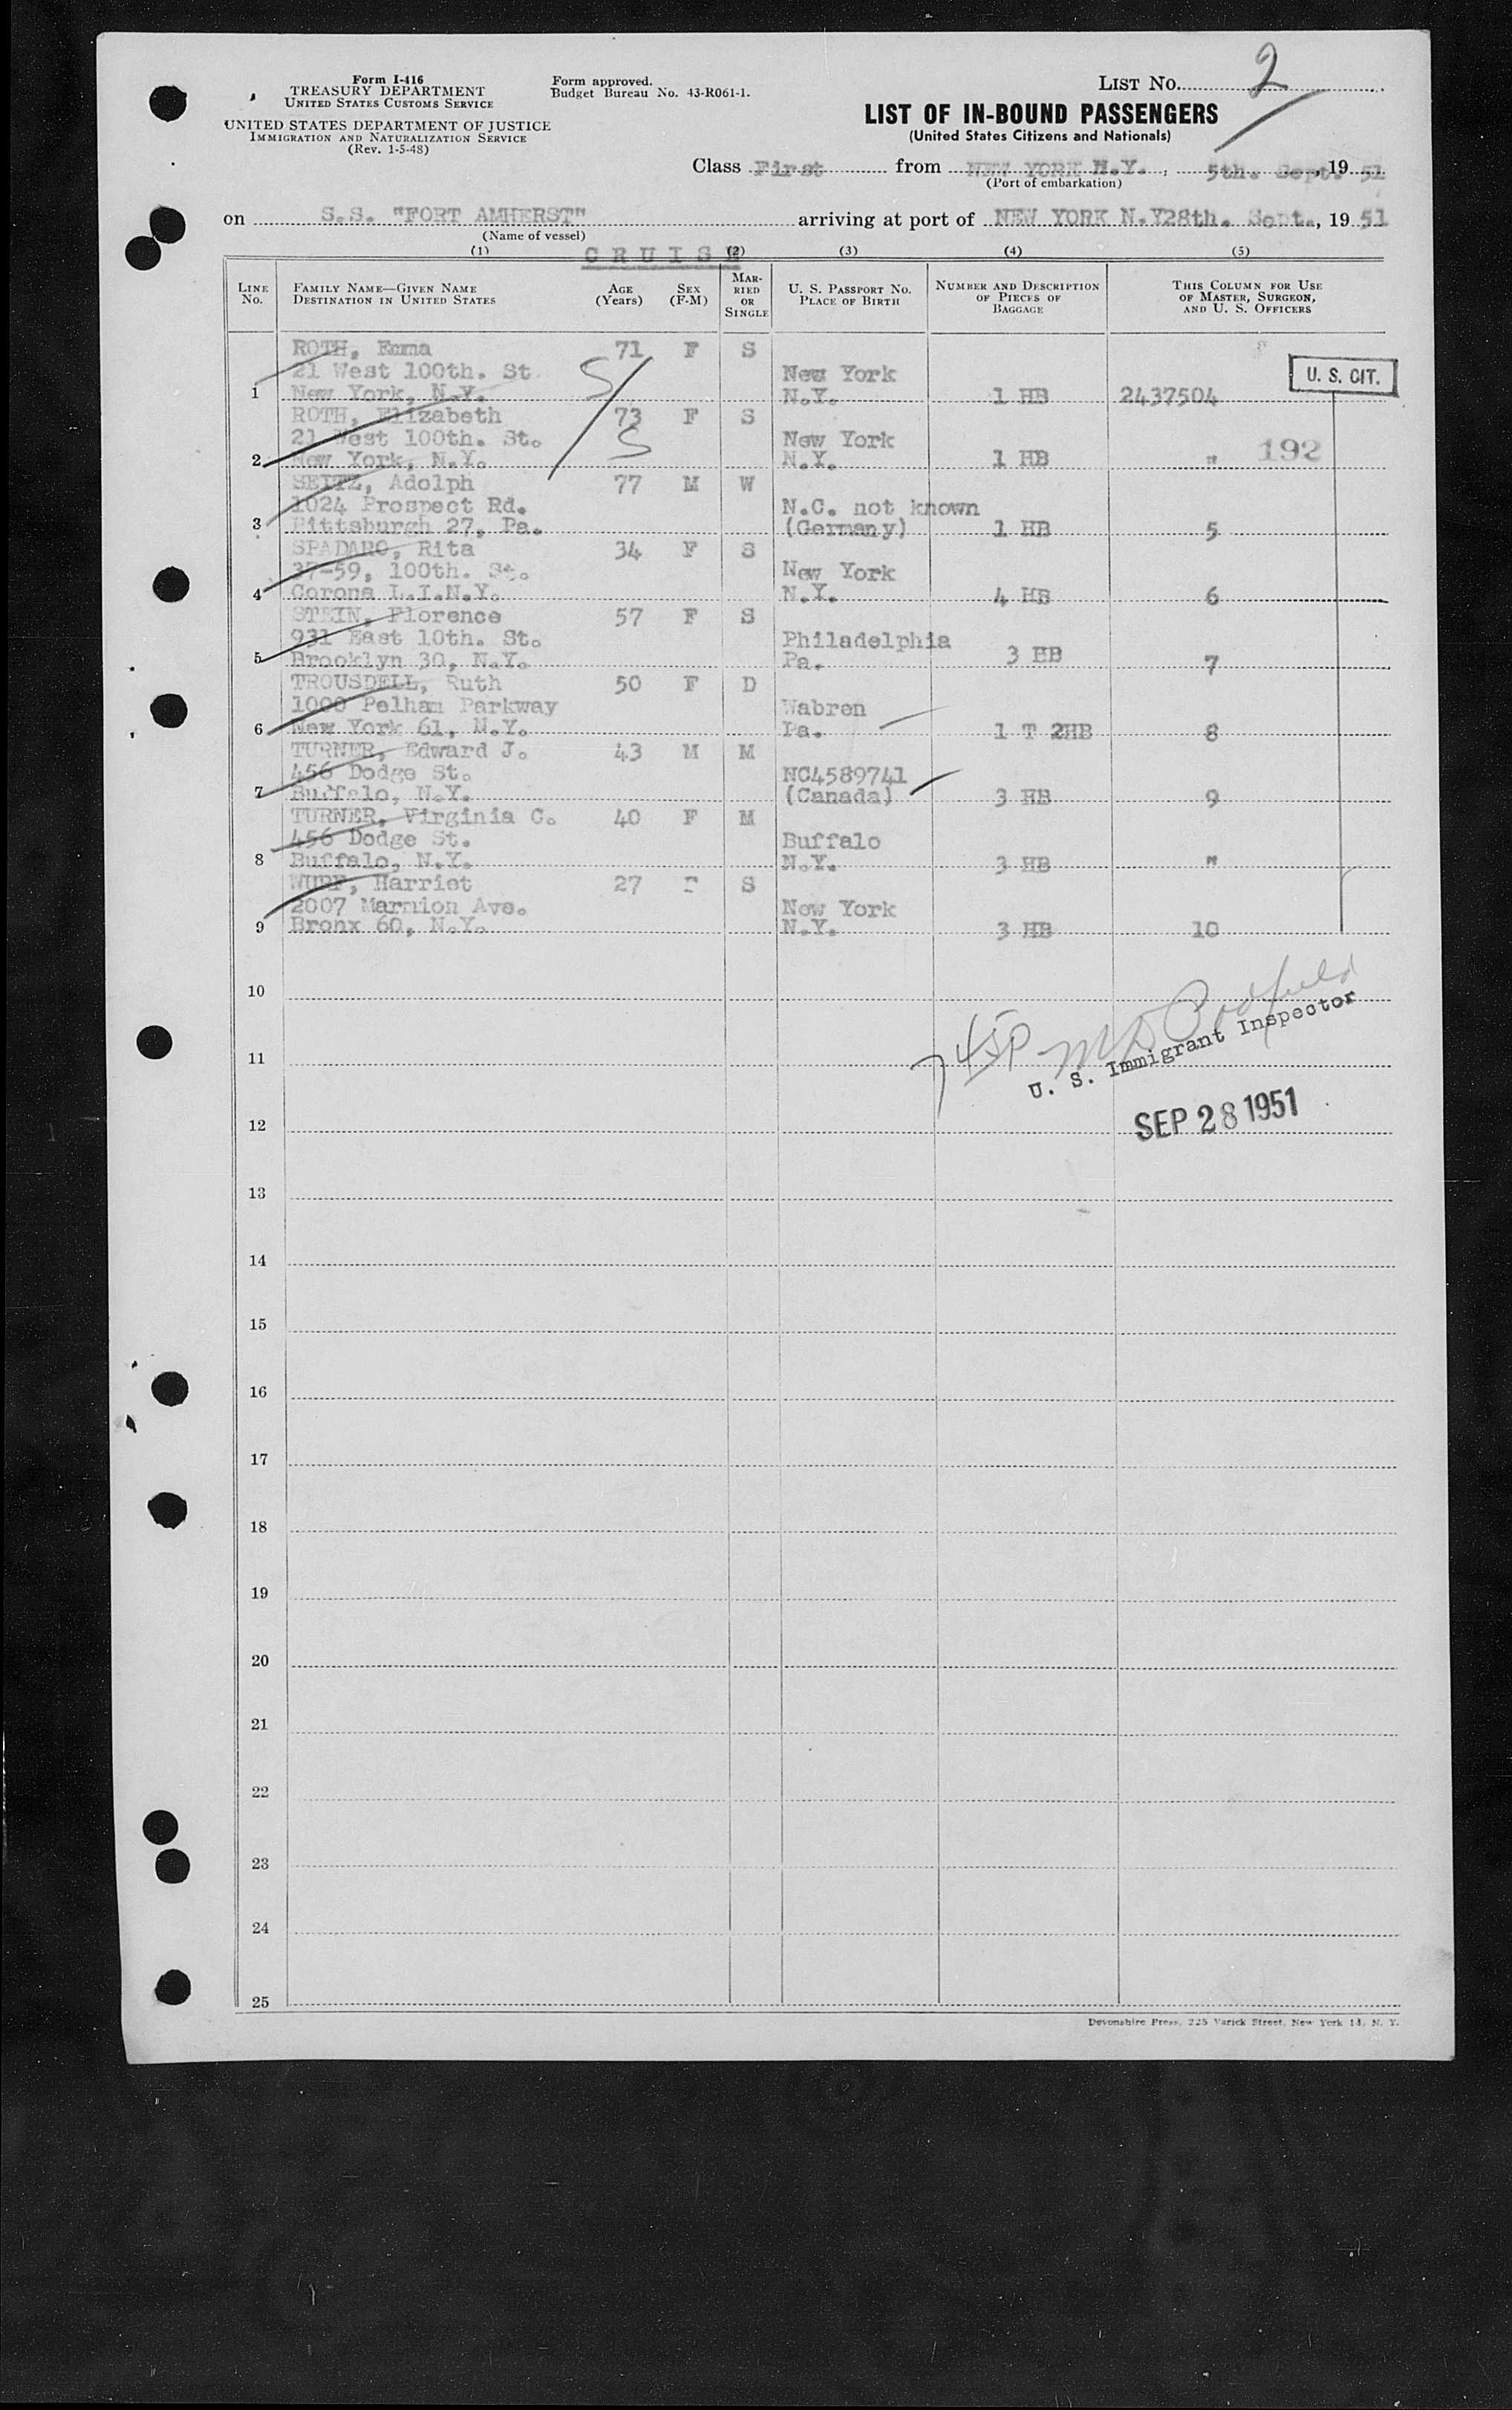 Form I-416
TREASURY DEPARTMENT
UNITED STATES CUSTOMS SERVICE
UNITED STATES DEPARTMENT OF JUSTICE
IMMIGRATION AND NATURALIZATION SERVICE
(Rev. 1-5-48)
Form approved.
Budget Bureau No. 43-R061-1.
LIST No. 2
LIST OF IN-BOUND PASSENGERS
(United States Citizens and Nationals)
Class First from NEW YORK N.Y., 5th. Sept., 19 51
(Port of embarkation)
on S.S. "FORT AMHERST" arriving at port of NEW YORK N.Y 28th. Sept., 19 51
(Name of vessel)
CRUISE
(1) (2) (3) (4) (5)
LINE NO. FAMILY NAME—GIVEN NAME DESTINATION IN UNITED STATES AGE (Years) SEX (F-M) MARRIED OR SINGLE U. S. PASSPORT NO. PLACE OF BIRTH NUMBER AND DESCRIPTION OF PIECES OF BAGGAGE THIS COLUMN FOR USE OF MASTER, SURGEON, AND U. S. OFFICERS
ROTH, Emma 71 F S
21 West 100th. St New York U. S. CIT.
1 New York, N.Y. N.Y. 1 HB 2437504
ROTH, Elizabeth 73 F S
21 West 100th. St. New York
2 New York, N.Y. N.Y. 1 HB " 192
SEITZ, Adolph 77 M W
1024 Prospect Rd. N.C. not known
3 Pittsburgh 27, Pa. (Germany) 1 HB 5
SPADARO, Rita 34 F S
37-59, 100th. St. New York
4 Corona L.I.N.Y. N.Y. 4 HB 6
STEIN, Florence 57 F S
931 East 10th. St. Philadelphia
5 Brooklyn 30, N.Y. Pa. 3 HB 7
TROUSDELL, Ruth 50 F D
1000 Pelham Parkway Wabren
6 New York 61, N.Y. Pa. 1 T 2HB 8
TURNER, Edward J. 43 M M
456 Dodge St. NC4589741
7 Buffalo, N.Y. (Canada) 3 HB 9
TURNER, Virginia C. 40 F M
456 Dodge St. Buffalo
8 Buffalo, N.Y. N.Y. 3 HB "
WURF, Harriet 27 F S
2007 Marmion Ave. New York
9 Bronx 60, N.Y. N.Y. 3 HB 10
10
11
U. S. Immigrant Inspector
12
SEP 28 1951
13
14
15
16
17
18
19
20
21
22
23
24
25
Devonshire Press, 225 Varick Street, New York 14, N. Y.